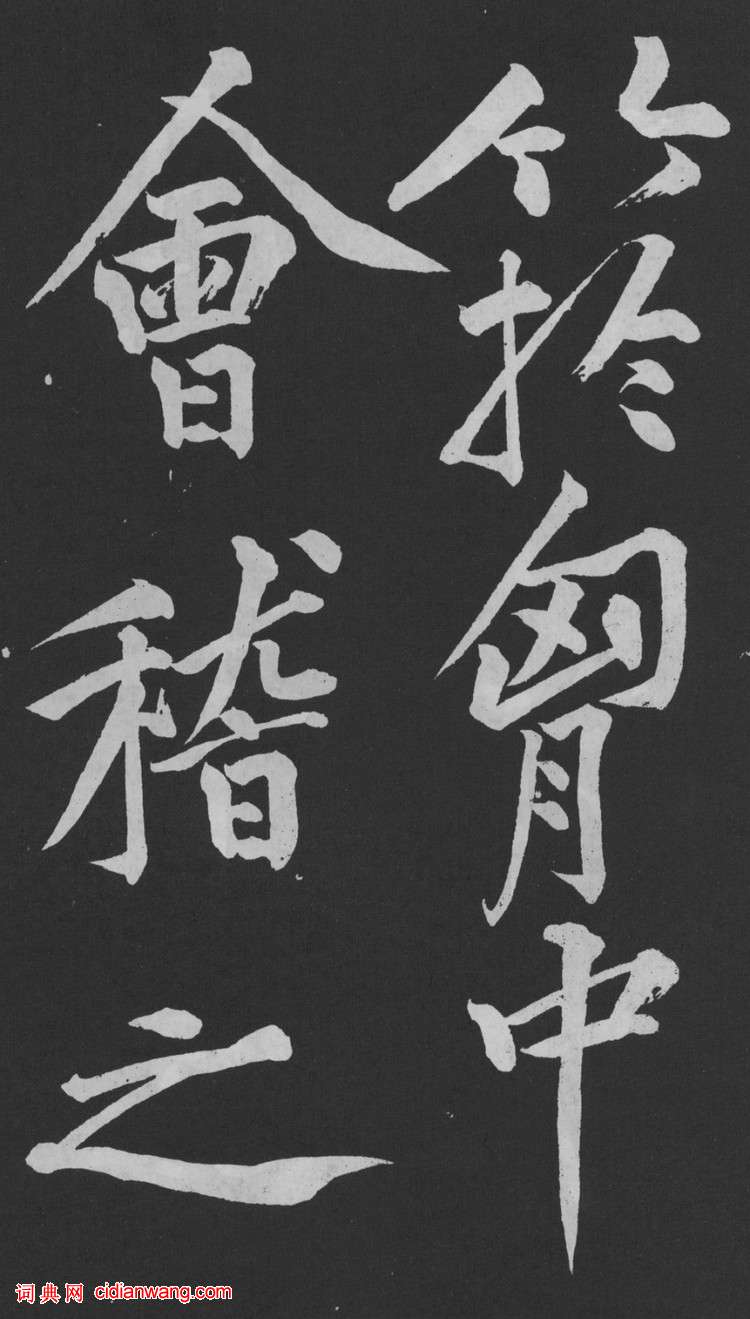 竹扵胷中
會稽之
词典网 cidianwang.com